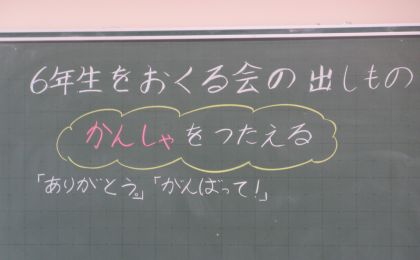 6年生をおくる会の出しもの
かんしゃをつたえる
「ありがとう。」「がんばって!」